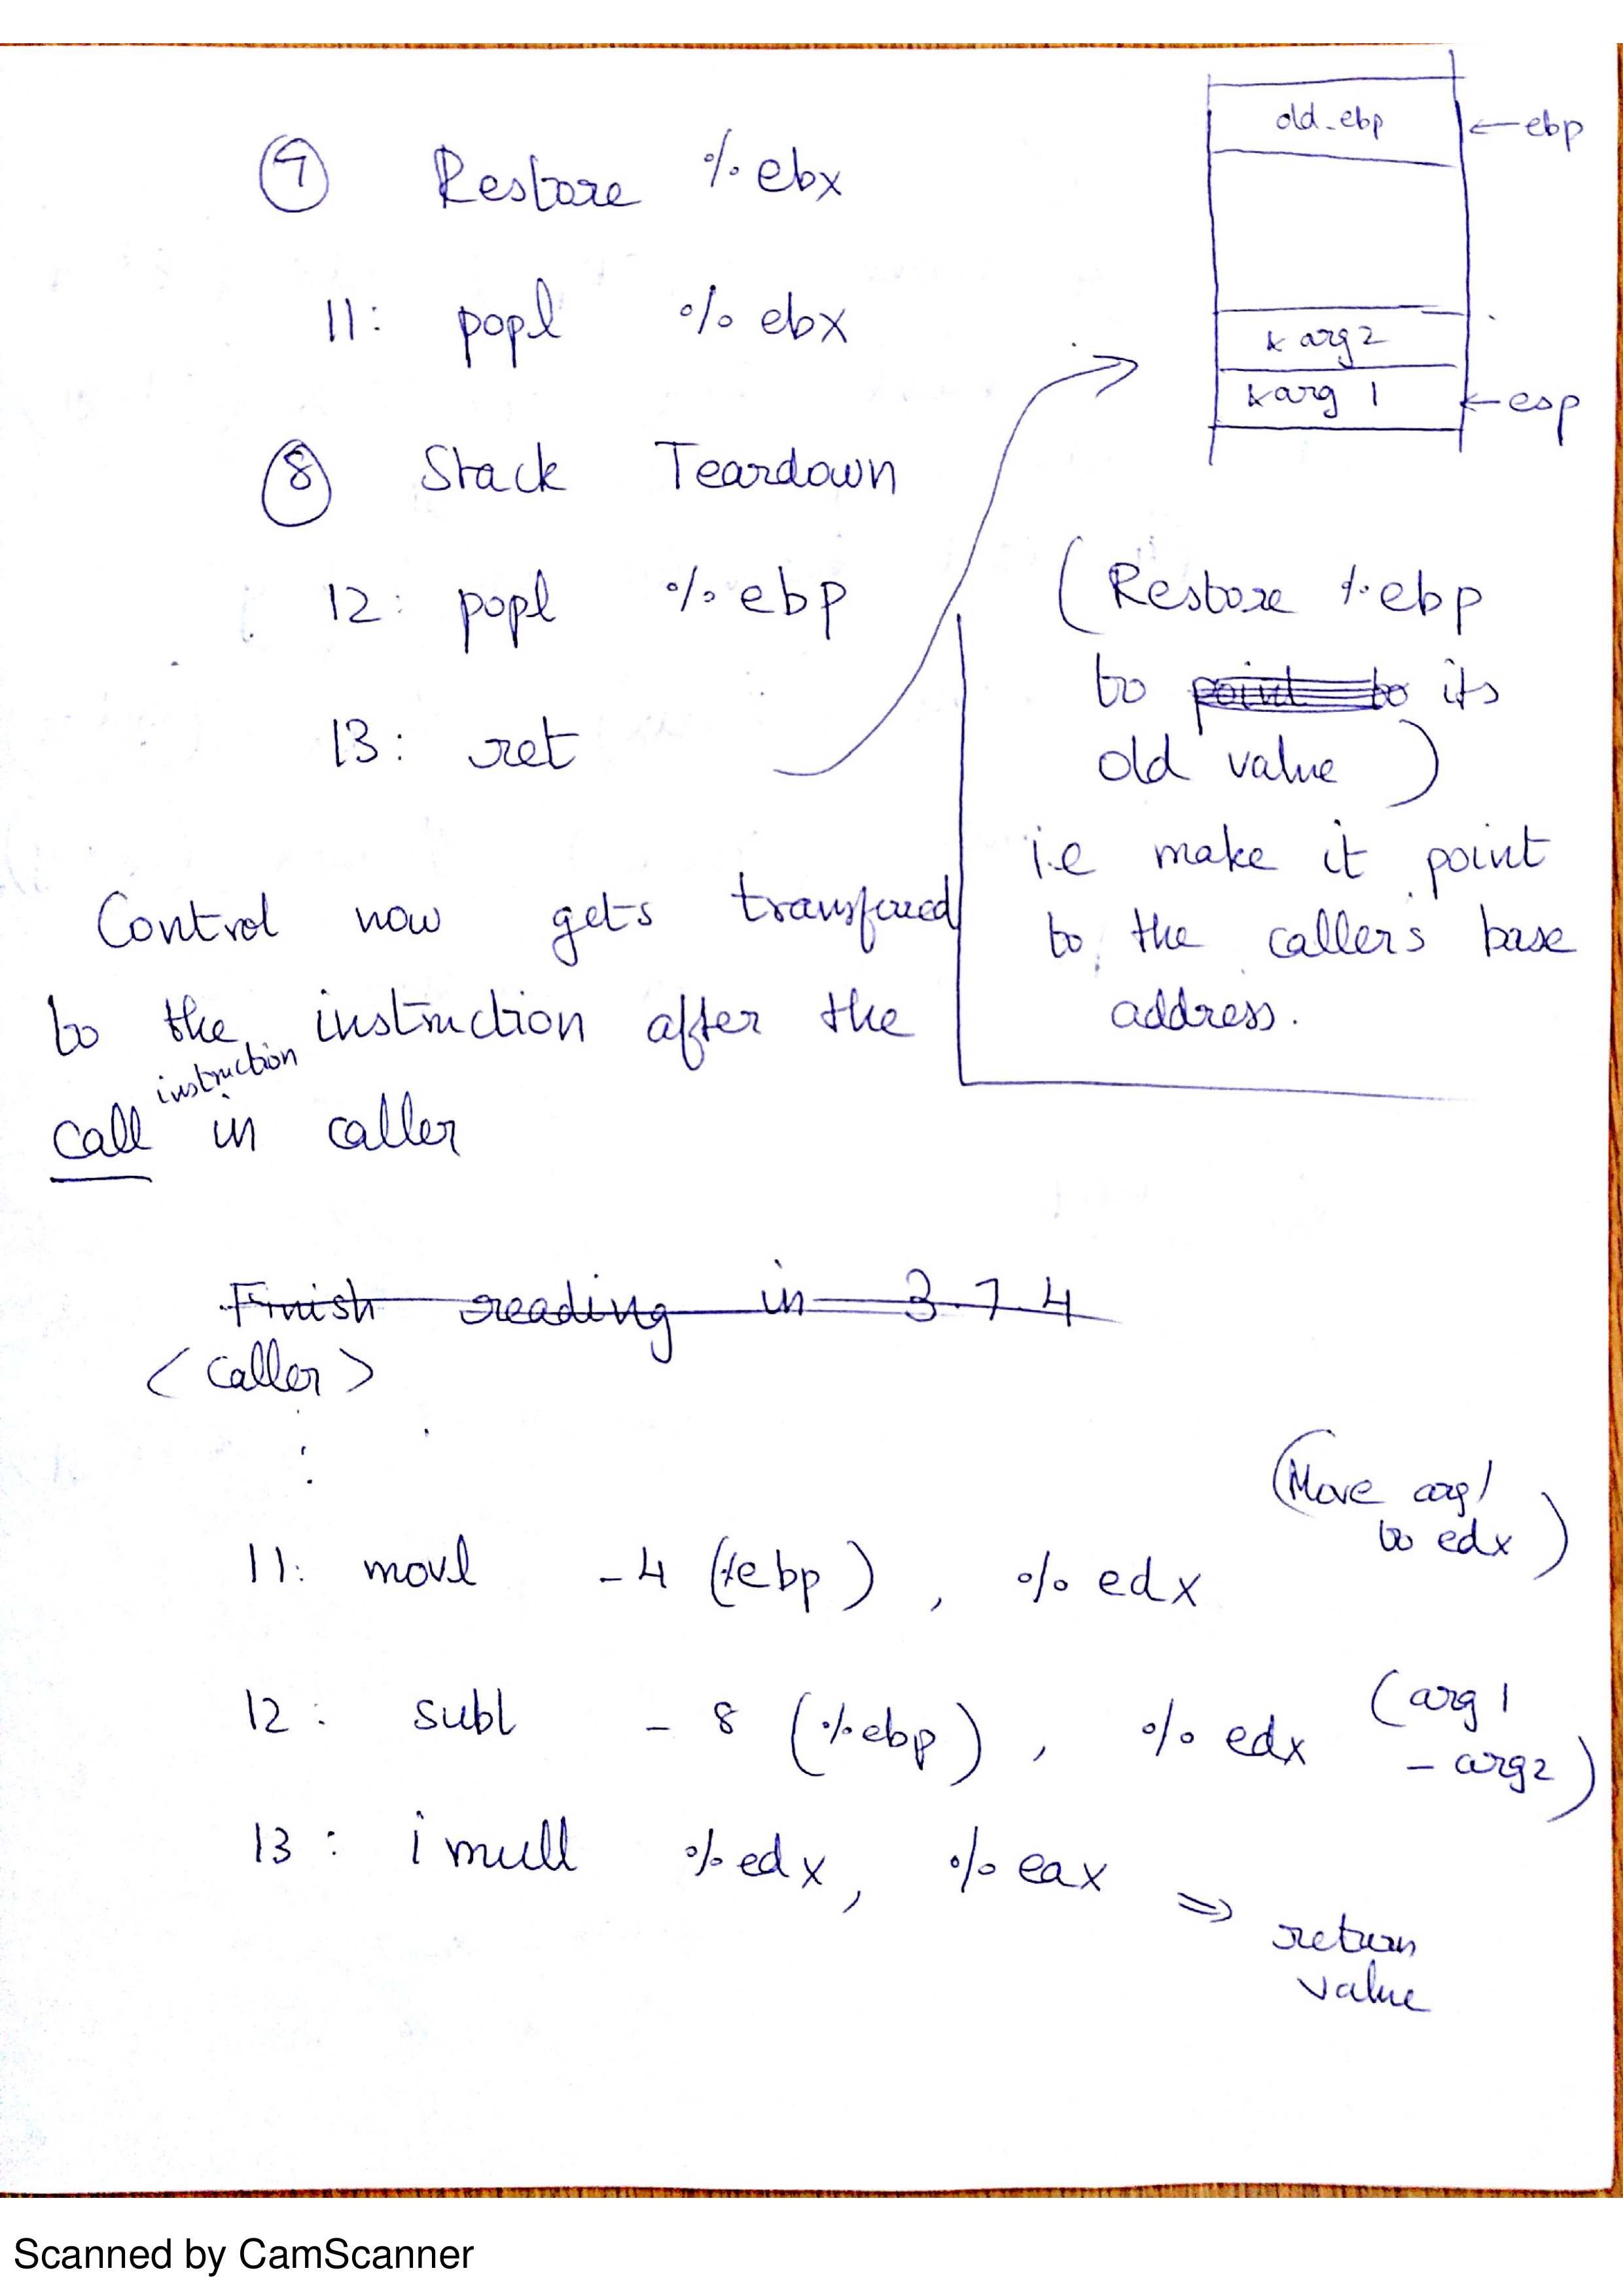 ⑦ Restore %ebx
11: popl %ebx
⑧ Stack Teardown
12: popl %ebp
13: ret
old_ebp ←ebp
& arg2
& arg 1 ←esp
(Restore %ebp
to point to its
old value)
i.e make it point
to the callers base
address.
Control now gets transferred
to the instruction after the
call instruction in caller
Finish reading in 3.7.4
<caller>
:
11: movl -4 (%ebp), %edx (Move arg1
to edx)
12: subl -8 (%ebp), %edx (arg 1
- arg2)
13: imull %edx, %eax ⇒ return
value
Scanned by CamScanner